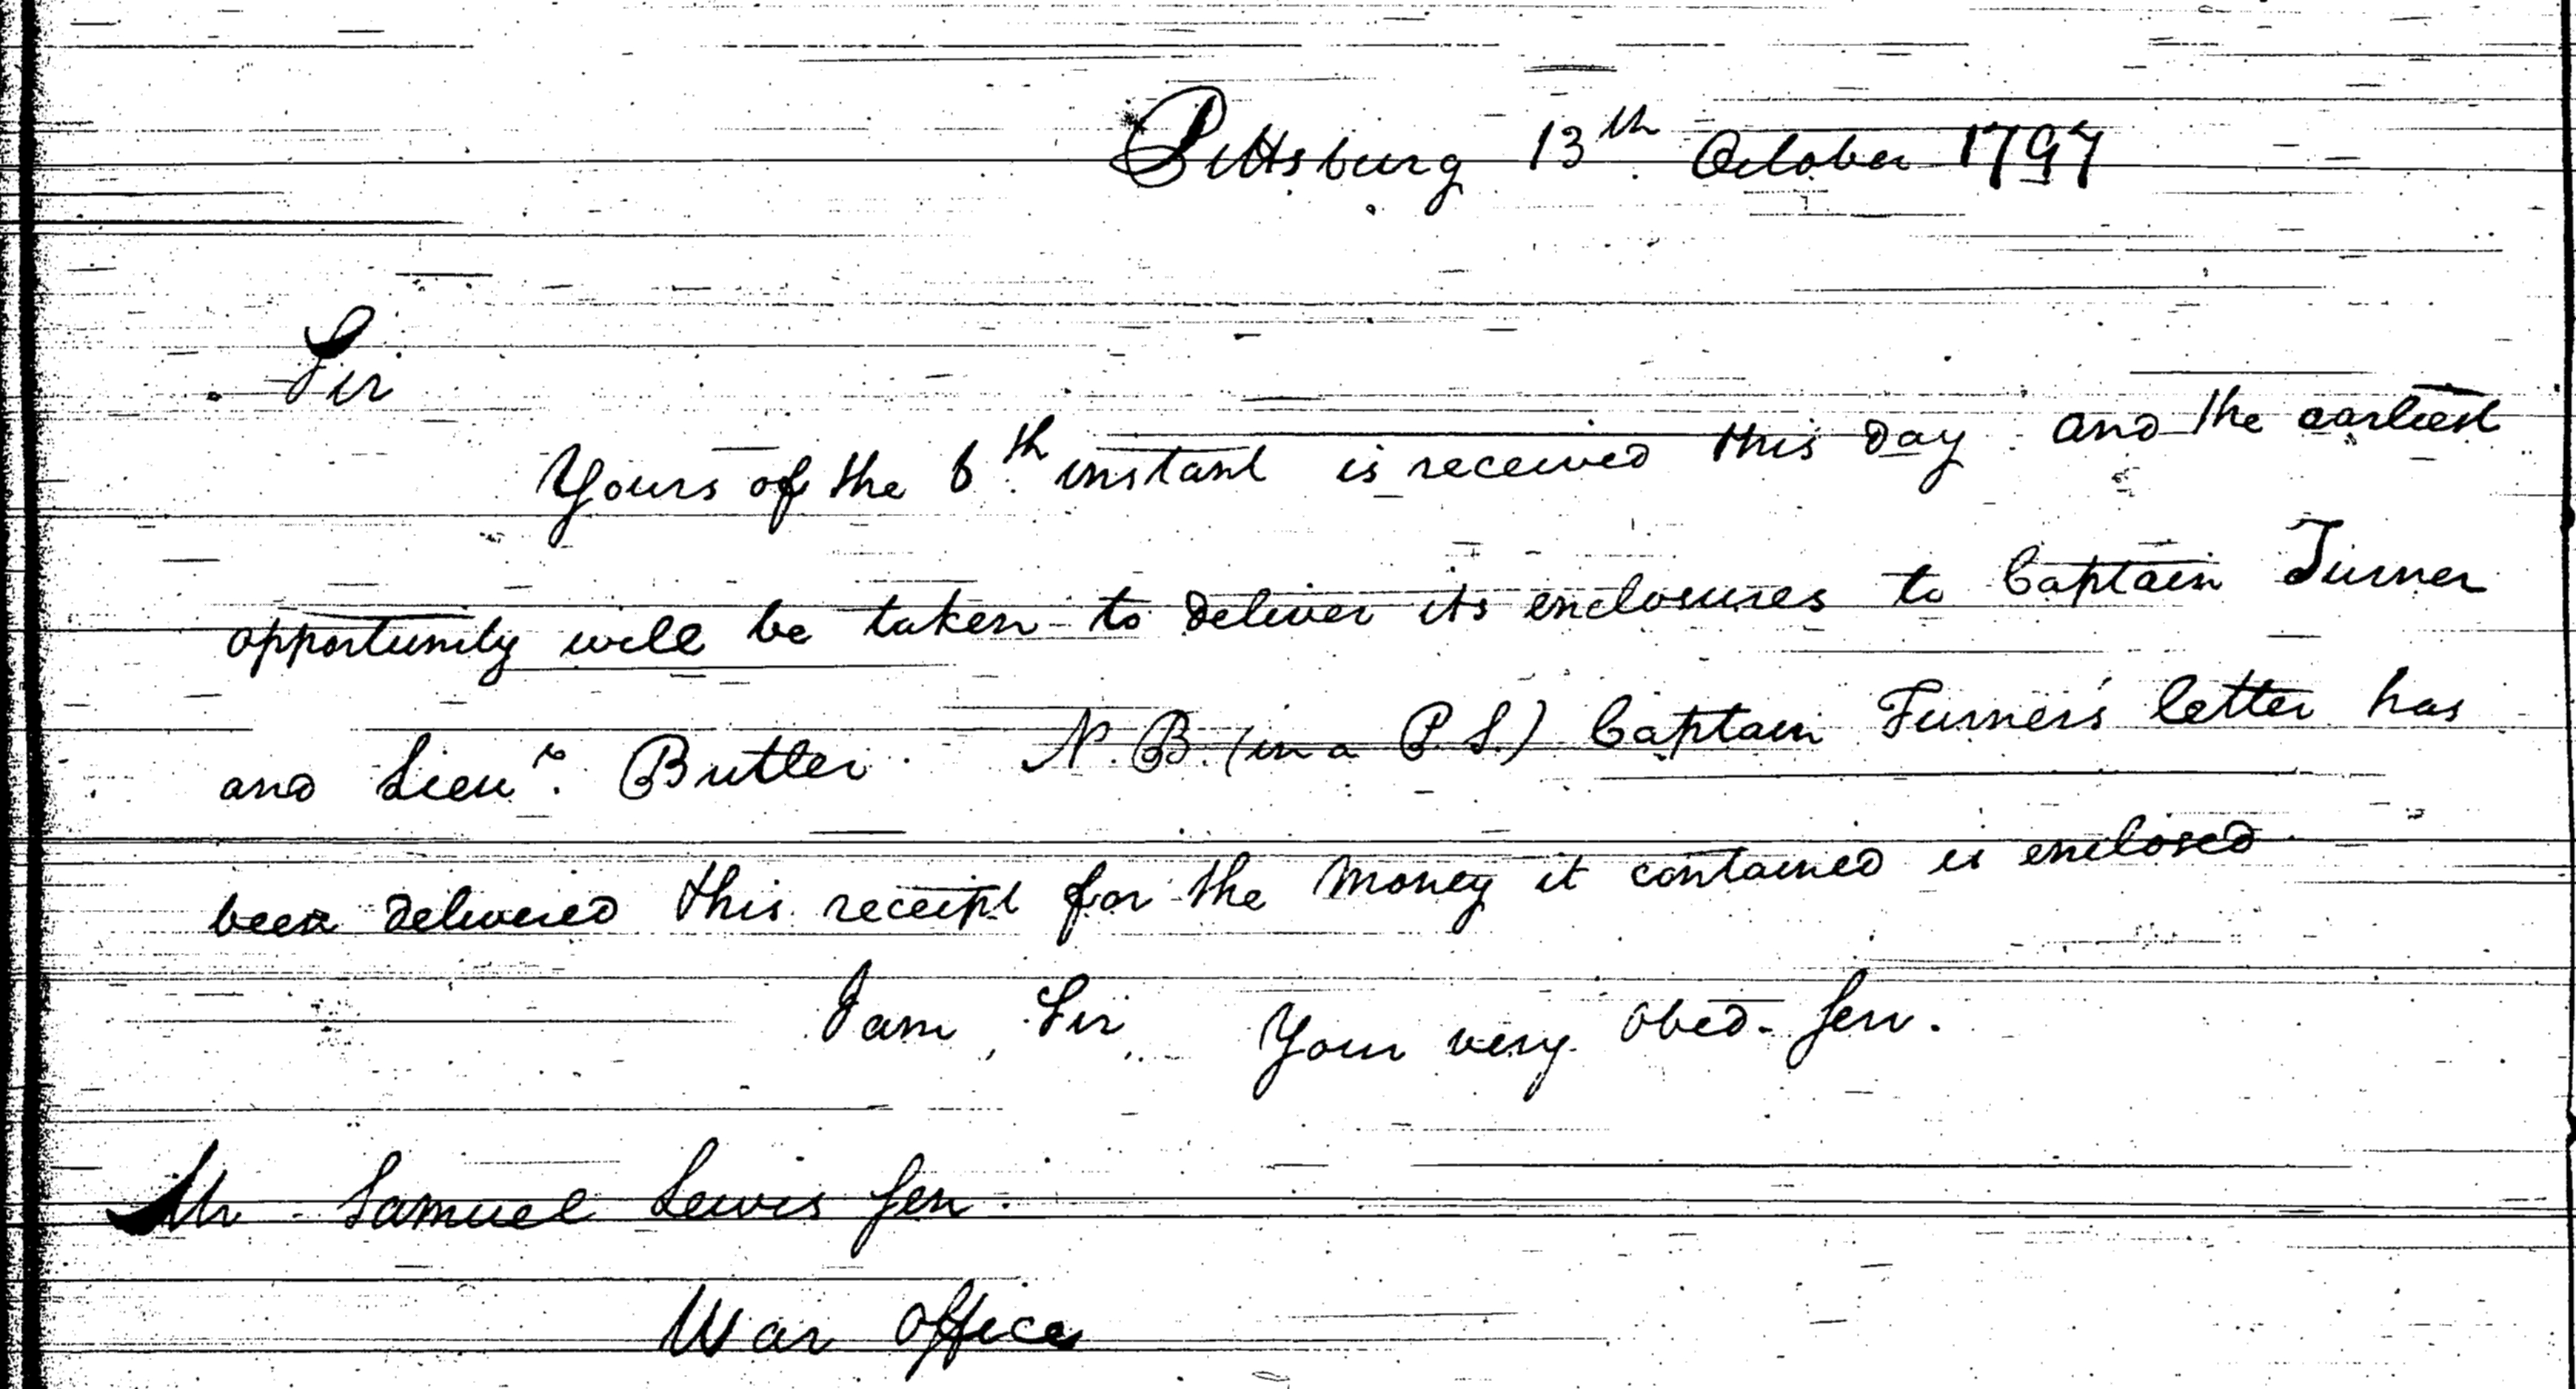 Pittsburg 13th October 1797
Sir
Yours of the 6th instant is received this day and the earliest
opportunity will be taken to deliver its enclosures to Captain Turner
and Lieut. Butler. N. B. (in a P. S.) Captain Turner's letter has
been delivered this receipt for the money it contained is enclosed
I am, Sir, Your very Obed. Serv.
Mr Samuel Lewis Sen.
War Office